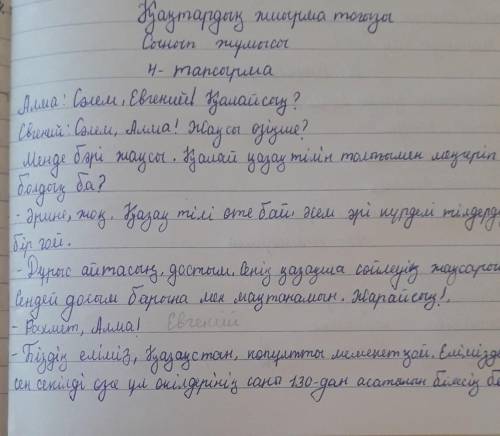 Қаңтардың жиырма тоғызы
Сынып жұмысы
4- тапсырма
Алма: Сәлем, Евгений! Қалайсың?
Евгений: Сәлем, Алма! Жақсы өзіңше?
Менде бәрі жақсы. Қалай қазақ тілін толығымен меңгеріп
болдың ба?
- Әрине, жоқ. Қазақ тілі өте бай, әсем әрі күрделі тілдерд
бір ғой.
- Дұрыс айтасың, достым. Сенің қазақша сөйлеуің жақсарып
Сендей досым барына мен мақтанамын. Жарайсың!.
- Рахмет, Алма! Евгений
- Біздің еліміз, Қазақстан, көпұлтты мемлекет ғой. Еліміздe
сен секілді өзге ұлт өкілдерінің саны 130-дан асатанын білесің б